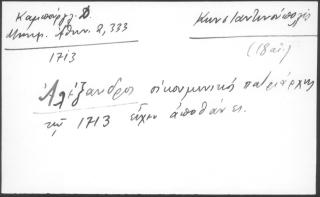 Καμπούρογλ. Δ.
Μνημ. Αθην. 2, 333
1713
Κωνσταντινούπολις
(18 αἰ)
Ἀλέξανδρος οἰκουμενικός πατριάρχης
τῇ 1713 εἶχεν ἀποθάνει.